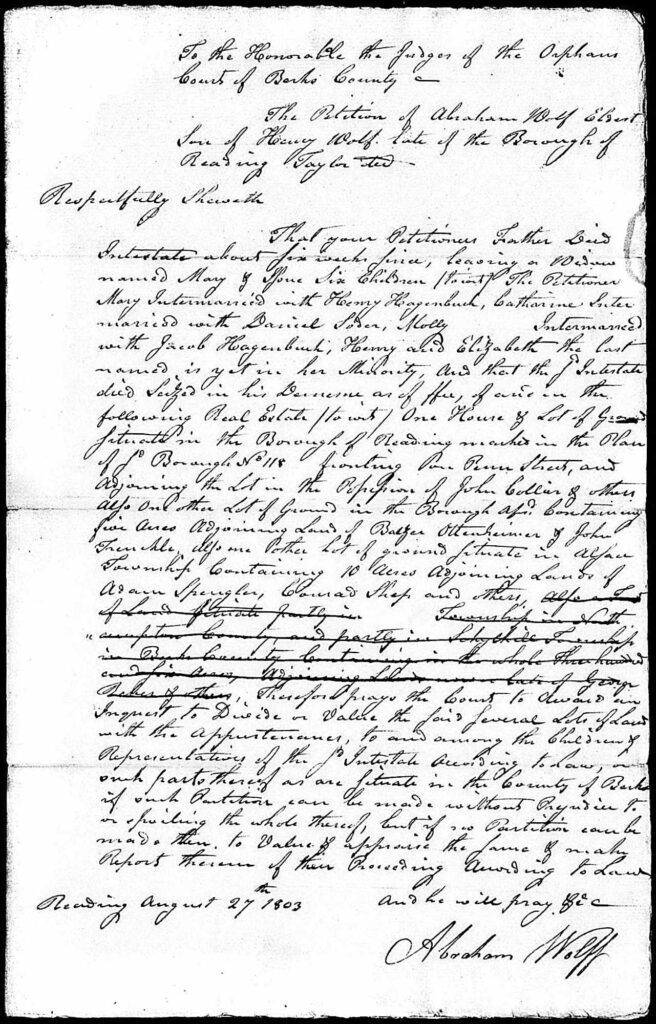 To the Honorable the Judges of the Orphans
Court of Berks County
The Petition of Abraham Wolf Eldest
Son of Henry Wolf late of the Borough of
Reading Taylor ded
Respectfully Sheweth
That your Petitioners Father Died
Intestate about Six weeks since, leaving a Widow
named Mary & Issue Six Children /to wit/ The Petitioner
Mary Intermarried with Henry Hagenbuch, Catharine Inter
married with Daniel Soder, Molly Intermarried
with Jacob Hagenbuch, Henry and Elizabeth the last
named is yet in her Minority, And that the sd Intestate
died Seized in his Demesne as of ffee, of and in the
following Real Estate /to wit/ One House & Lot of Ground
Situate in the Borough of Reading marked in the Plan
of sd Borough No 118 fronting Penn Street, and
Adjoining the Lot in the Possession of John Collier & others
Also one other Lot of Ground in the Borough afsd. Containing
five Acres Adjoining Land of Balzer Ottenheimer & John
Frenkle, also one other Lot of ground Situate in Alsace
Township Containing 10 Acres Adjoining Lands of
Adam Spengler, Conrad Shep and others, Also a
of Land Situate partly in Township in North
ampton County, and partly in Township
in Berks County Containing in the whole Three hundred
and Six Acres, Adjoining Lands now or late of George
& others, Therefore prays the Court to Award an
Inquest to Divide or Value the said several Lots of Land
with the Appurtenances, to and among the Children &
Representatives of the sd Intestate According to Law, or
such parts thereof as are Situate in the County of Berks
if such Partition can be made without Prejudice to
or spoiling the whole thereof, but if no Partition can be
made then to Value & appraise the same & make
Report therein of their Proceeding According to Law
Reading August 27th 1803 And he will pray &c
Abraham Wolff